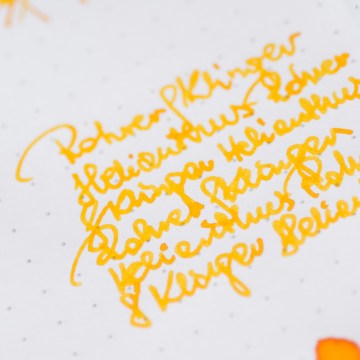 Rohrer & Klinger
Helianthus Rohrer
& Klinger Helianthus
Rohrer & Klinger
Helianthus Rohr
& Klinger Helian